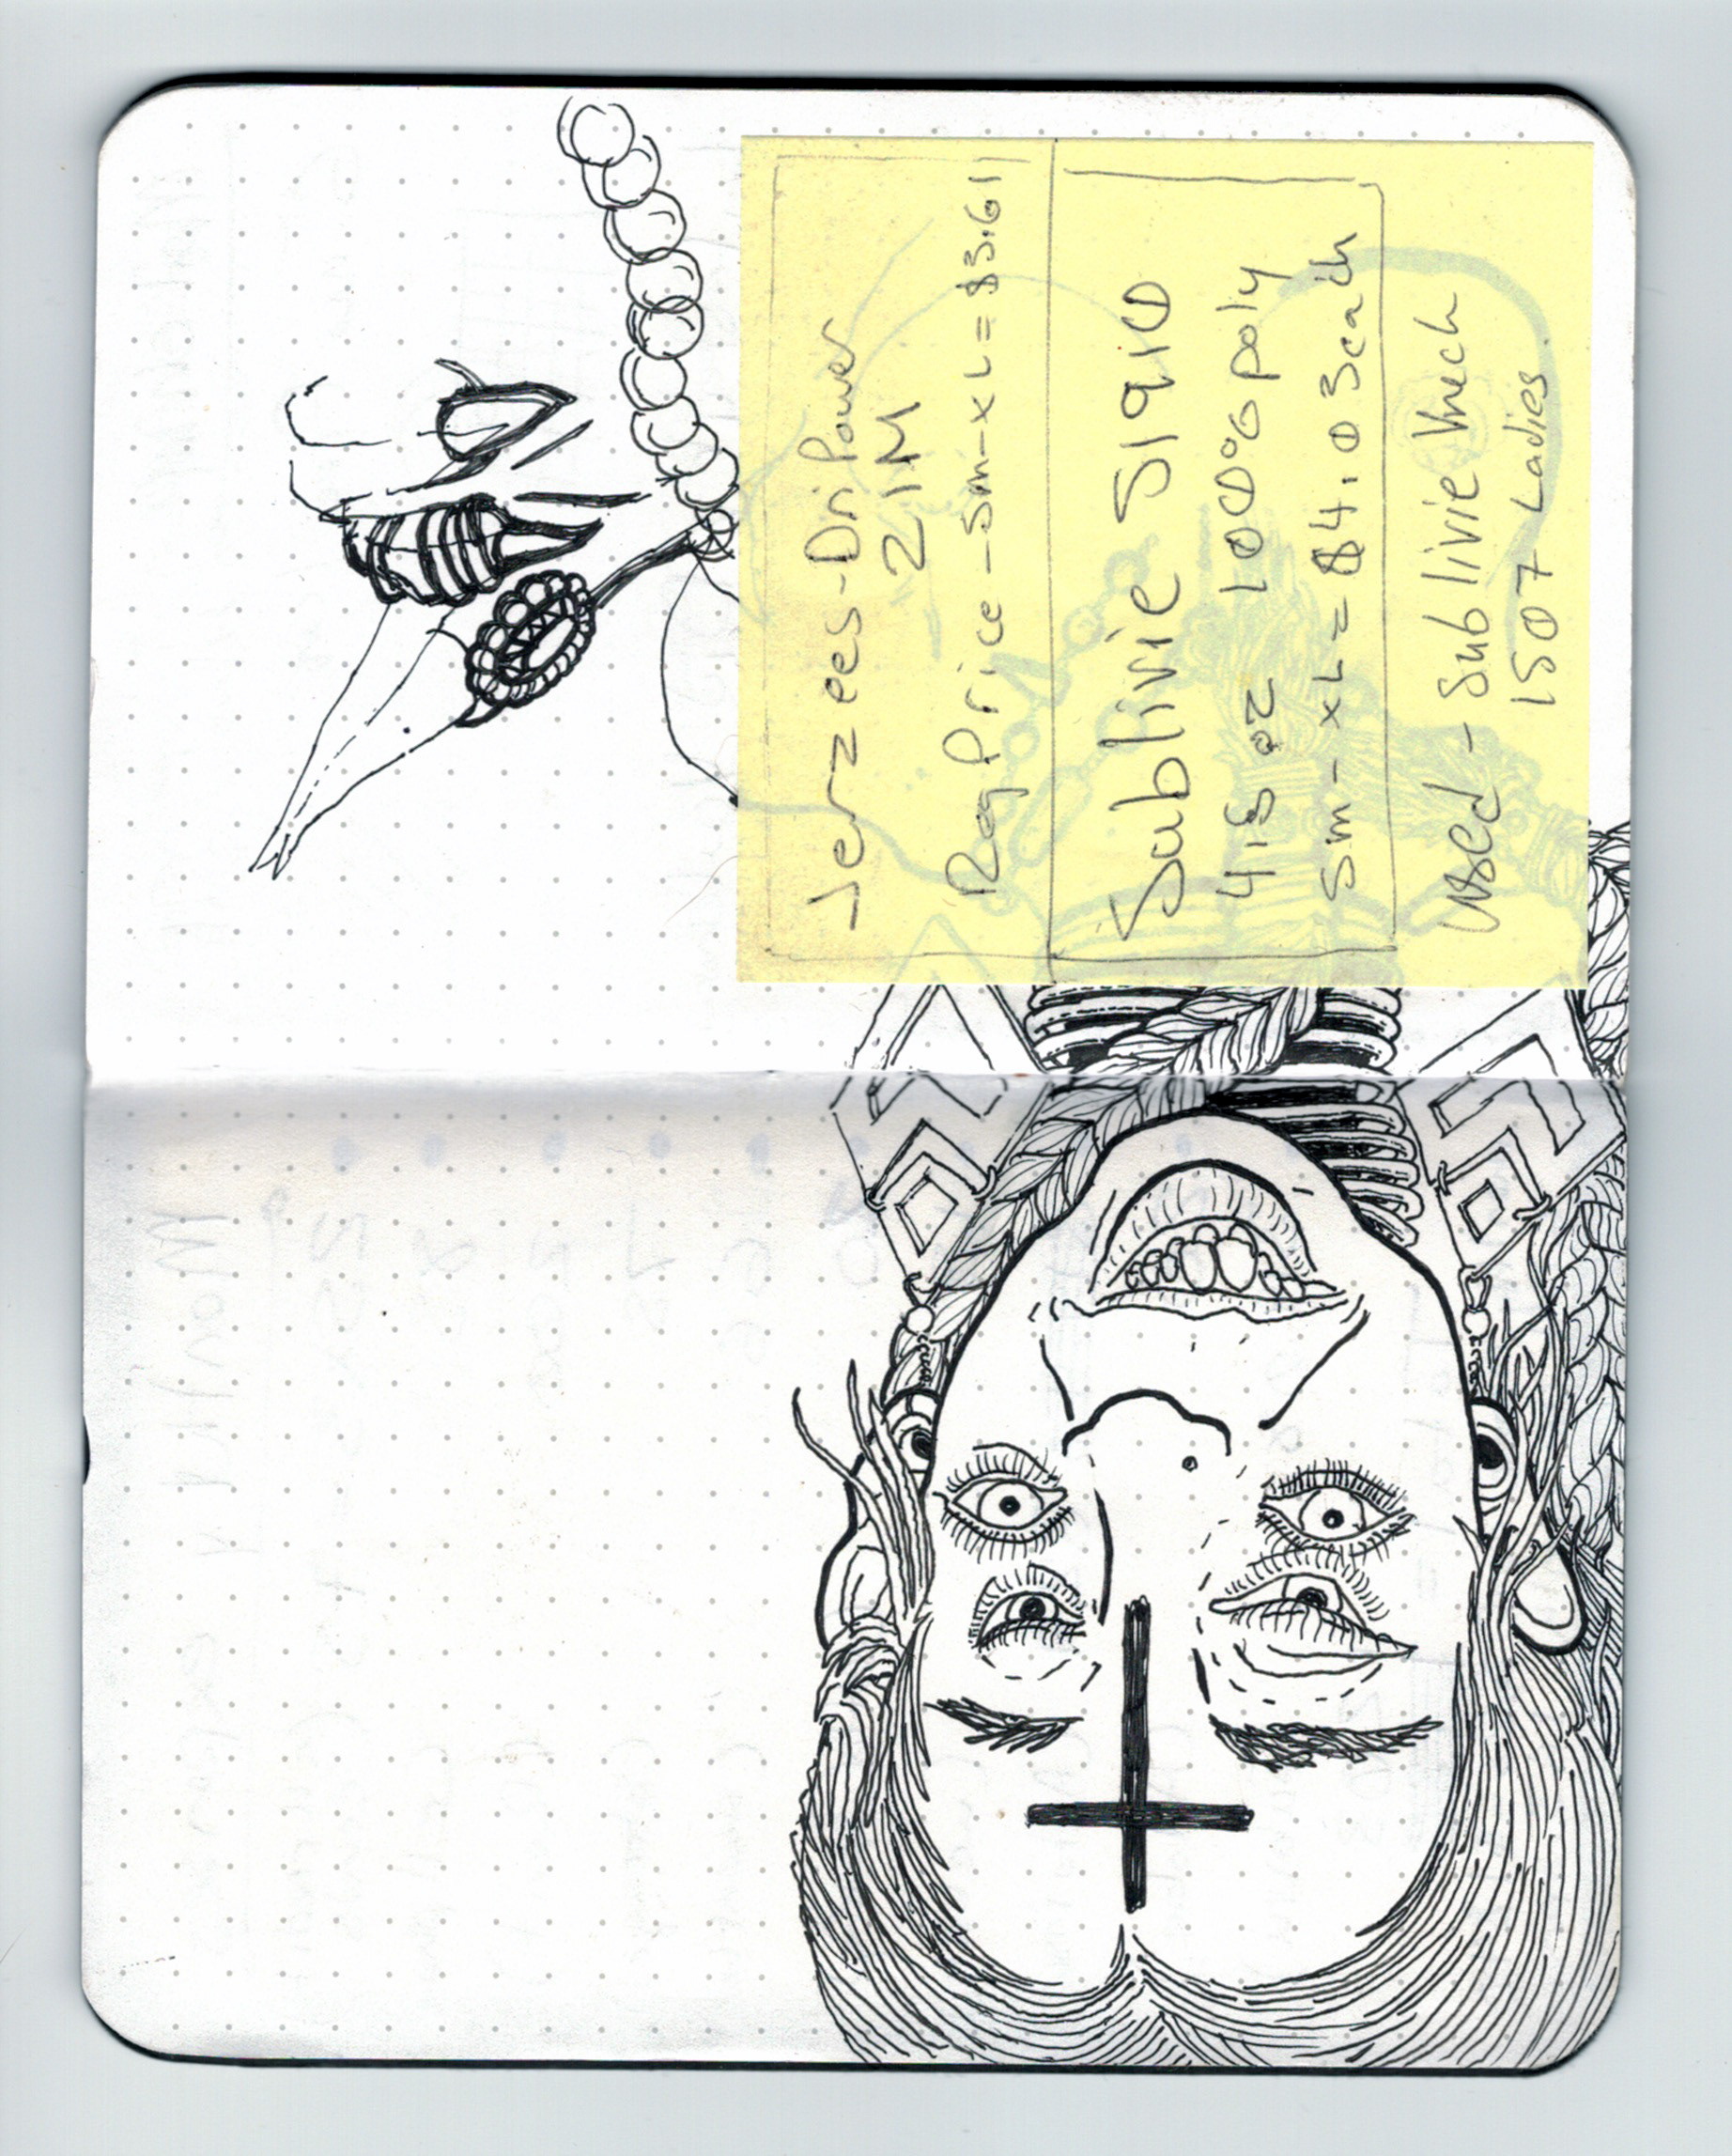 Jerzees-Dri Power
21M
Reg Price - Sm-XL = $3.61
Sublivie S1910
4.8 oz 100% poly
Sm-XL = $4.03 each
Used - Sublivie Vneck
1507 Ladies